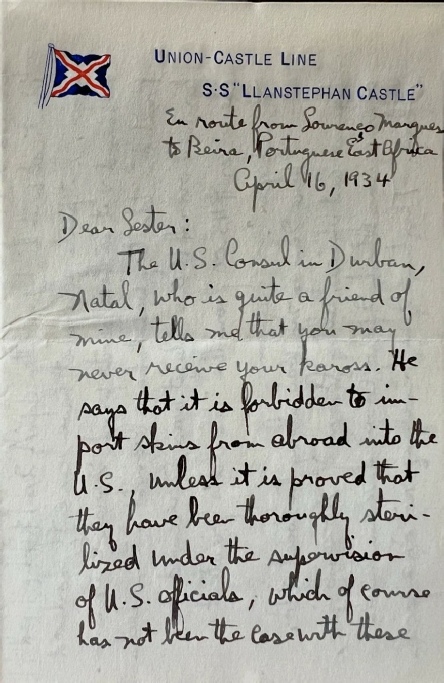 UNION-CASTLE LINE
S·S "LLANSTEPHAN CASTLE"
En route from Lourenço Marques
to Beira, Portuguese East Africa
April 16, 1934
Dear Lester:
The U.S. Consul in Durban,
Natal, who is quite a friend of
mine, tells me that you may
never receive your kaross. He
says that it is forbidden to im-
port skins from abroad into the
U.S., unless it is proved that
they have been thoroughly steri-
lized under the supervision
of U.S. officials, which of course
has not been the case with these